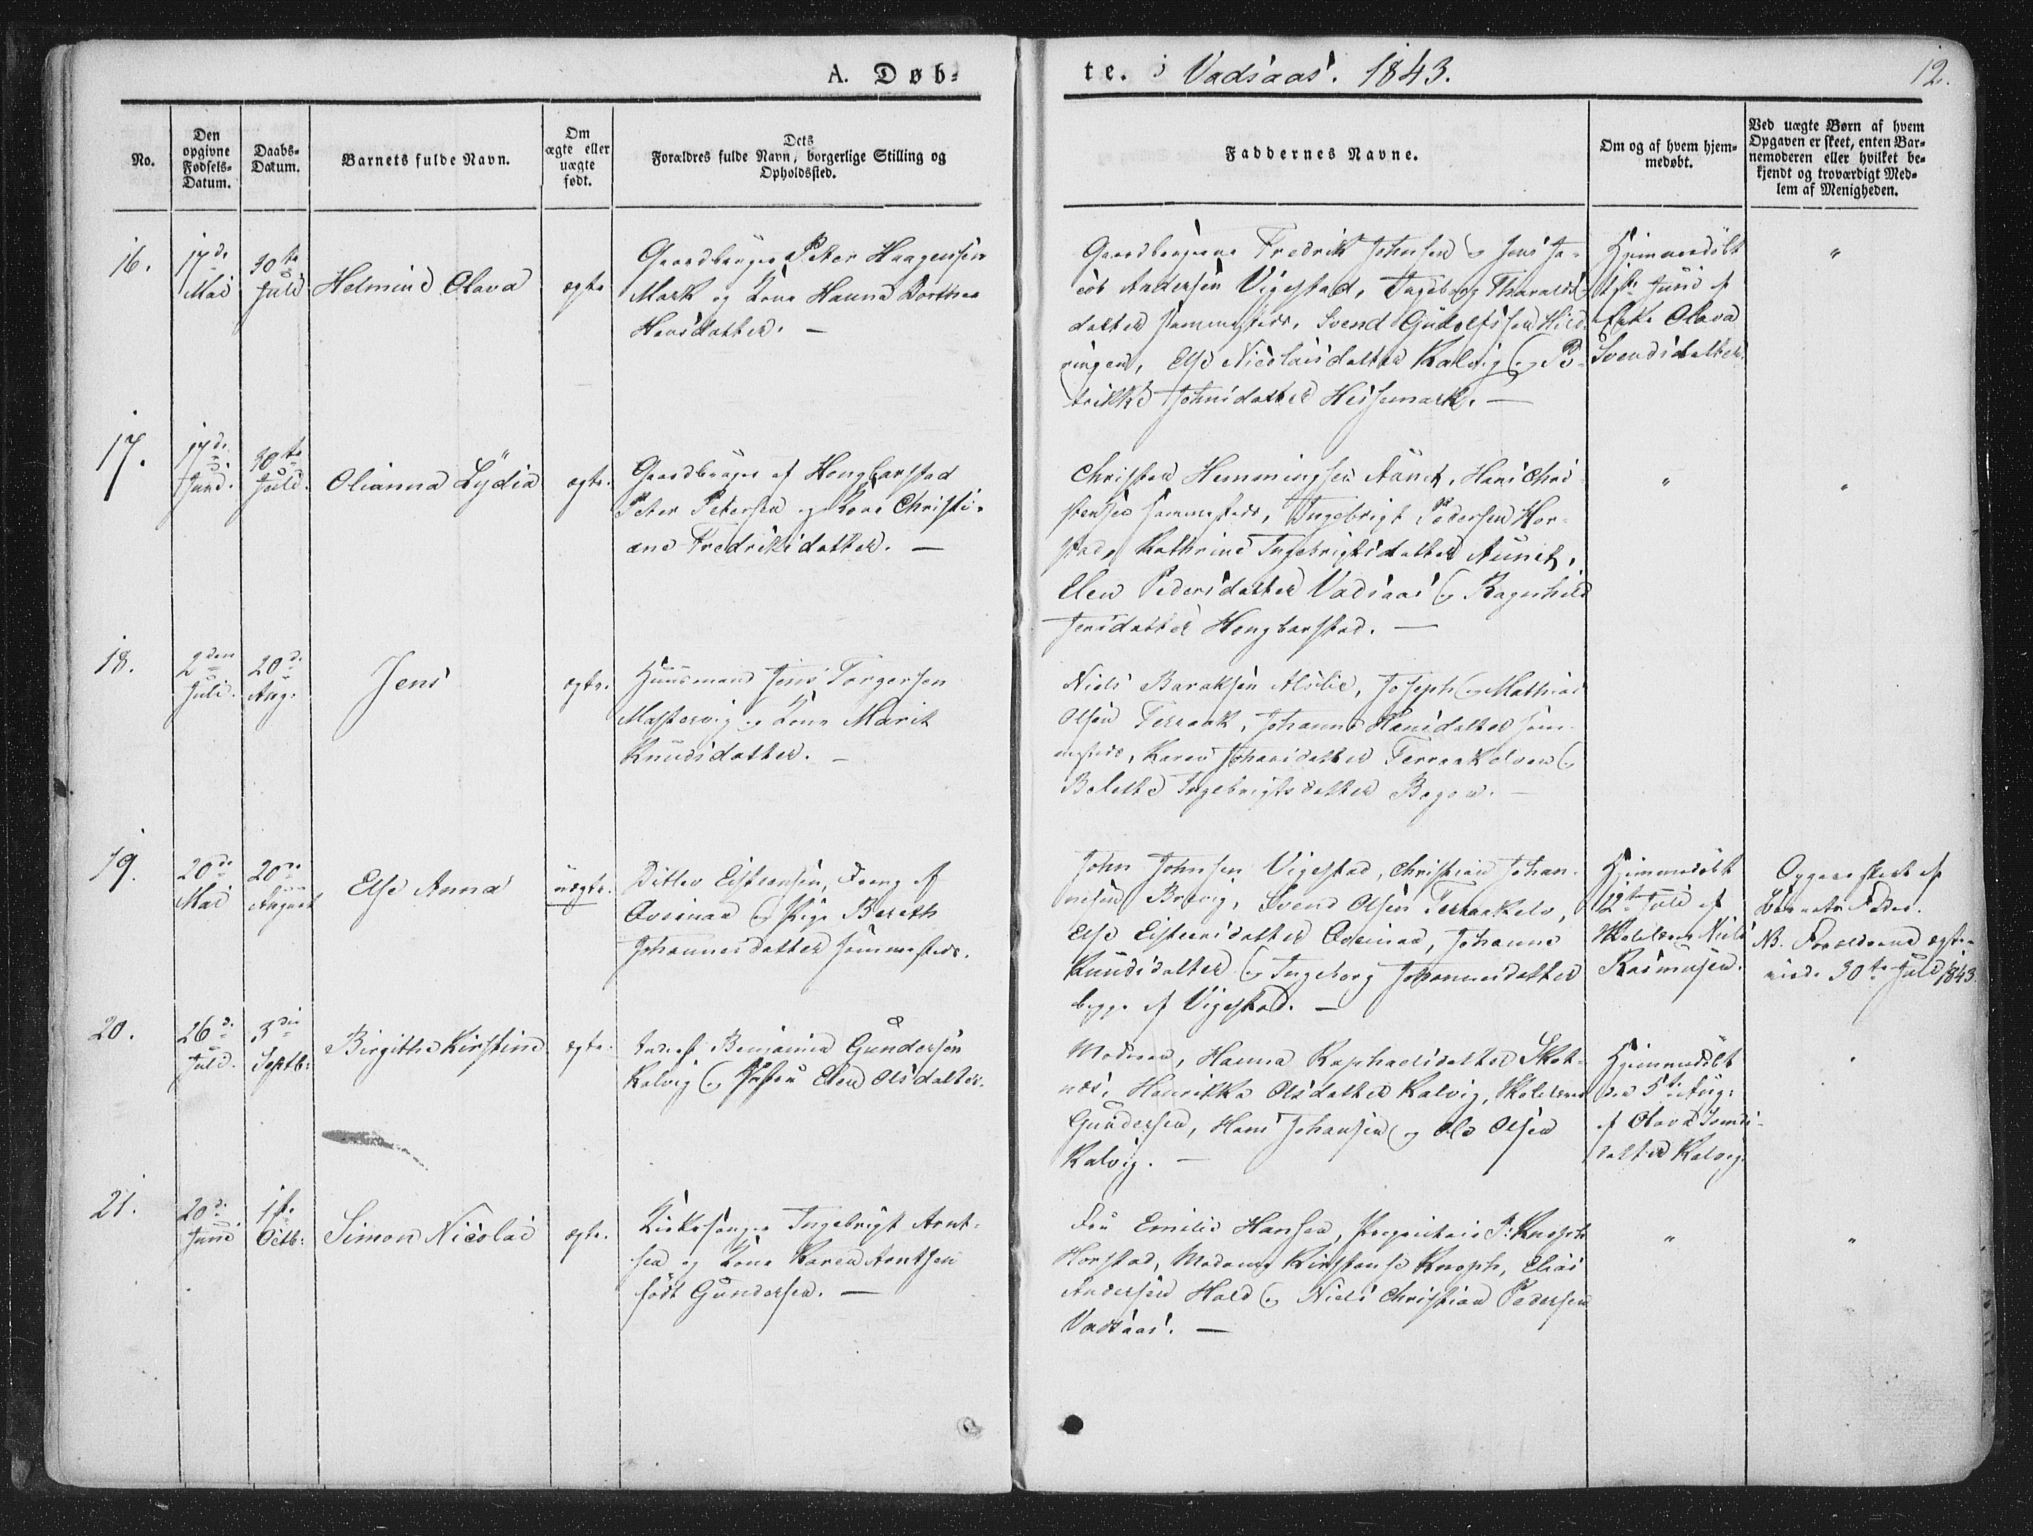 A. Døb=
te. i Vadsaas. 1843.
12.
No.
Den opgivne Fødsels-Datum.
Daabs-Datum.
Barnets fulde Navn.
Om ægte eller uægte født.
Dets Forældres fulde Navn, borgerlige Stilling og Opholdssted.
Faddernes Navne.
Om og af hvem hjem-medøbt.
Ved uægte Børn af hvem Opgaven er skeet, enten Bar-nemoderen eller hvilket be-kjendt og troværdigt Med-lem af Menigheden.
16.
17de Mai
30te Juli
Helmine Olava
ægte
Gaardbruger Peter Haagensen
Mark og Kone Hanna Dorthea
Hansdatter. —
Gaardbrugerne Fredrik Johnsen og Jens Ja-
cob Andersen Vigestad, Ingeborg Tharalds-
datter sammesteds, Svend Gudolfsen Hild-
ringen, Else Nicolaisdatter Kalvig og Pe-
trikke Johnsdatter Heisemark. —
Hjemmedøbt
Juni af
Olava
Svendsdatter
"
17.
17de Juni.
30te Juli.
Olianna Lydia
ægte.
Gaardbruger af Hongbarstad
Peter Petersen og Kone Christi-
ane Fredriksdatter. —
Christen Hemmingsen Aunet, Hans Chri-
stensen sammesteds, Ingebrigt Pedersen Hor-
stad, Kathrine Ingebrigtsdatter Aunet,
Elen Pedersdatter Vadsaas og Ragnhild
Jensdatter Hongbarstad. —
"
"
18.
2den Juli.
20de Aug.
Jens
ægte.
Huusmand Jens Torgersen
Mastervig og Kone Marit
Knudsdatter. —
Niels Baraksen Alslie, Joseph og Mathias
Olsen Terraak, Johanna Hansdatter sam-
mesteds, Karen Johansdatter Terraakelven og
Belette Ingebrigtsdatter Bogen. —
19.
20de Mai
20de August
Else Anna
uægte.
Ditlev Eistensen, Dreng af
Aarsnaa og Pige Bereth
Johannesdatter sammesteds.
John Johnsen Vigestad, Christian Johan-
nesen Bolvig, Svend Olsen Terraakelv,
Else Eistensdatter Johanna
Knudsdatter og Ingeborg Johannesdatter
begge af Vigestad. —
Hjemmedøbt
12te Juli af
Skolelærer Niels
Rasmusen.
Opgave skeet af
Barnets Fader.
NB. Forældrene ægte-
viede 30te Juli 1843.
20.
26de Juli.
3die Septb:
Birgithe Kirstine
ægte.
Benjamin Gundersen
Kalvig og Hustru Elen Olsdatter.
Madam, Hanna Raphaelsdatter Skot-
næs, Henrikka Olsdatter Kalvig, Skolelærer
Gundersen, Hans Johansen og Ole Olsen
Kalvig. —
Hjemmedøbt
den 5te Aug:
af Olava Svends-
datter Kalvig.
21.
20de Juni
1ste Octb:
Simon Nicolai
ægte.
Kirkesanger Ingebrigt Arnt-
sen og Kone Karen Arntsen
født Gundersen. —
Fru Emilie Hansen, Proprietair P. Knoph
Horstad, Madame Kirstense Knoph, Elias
Andersen Hald og Niels Christian Pedersen
Vadsaas. —
"
"